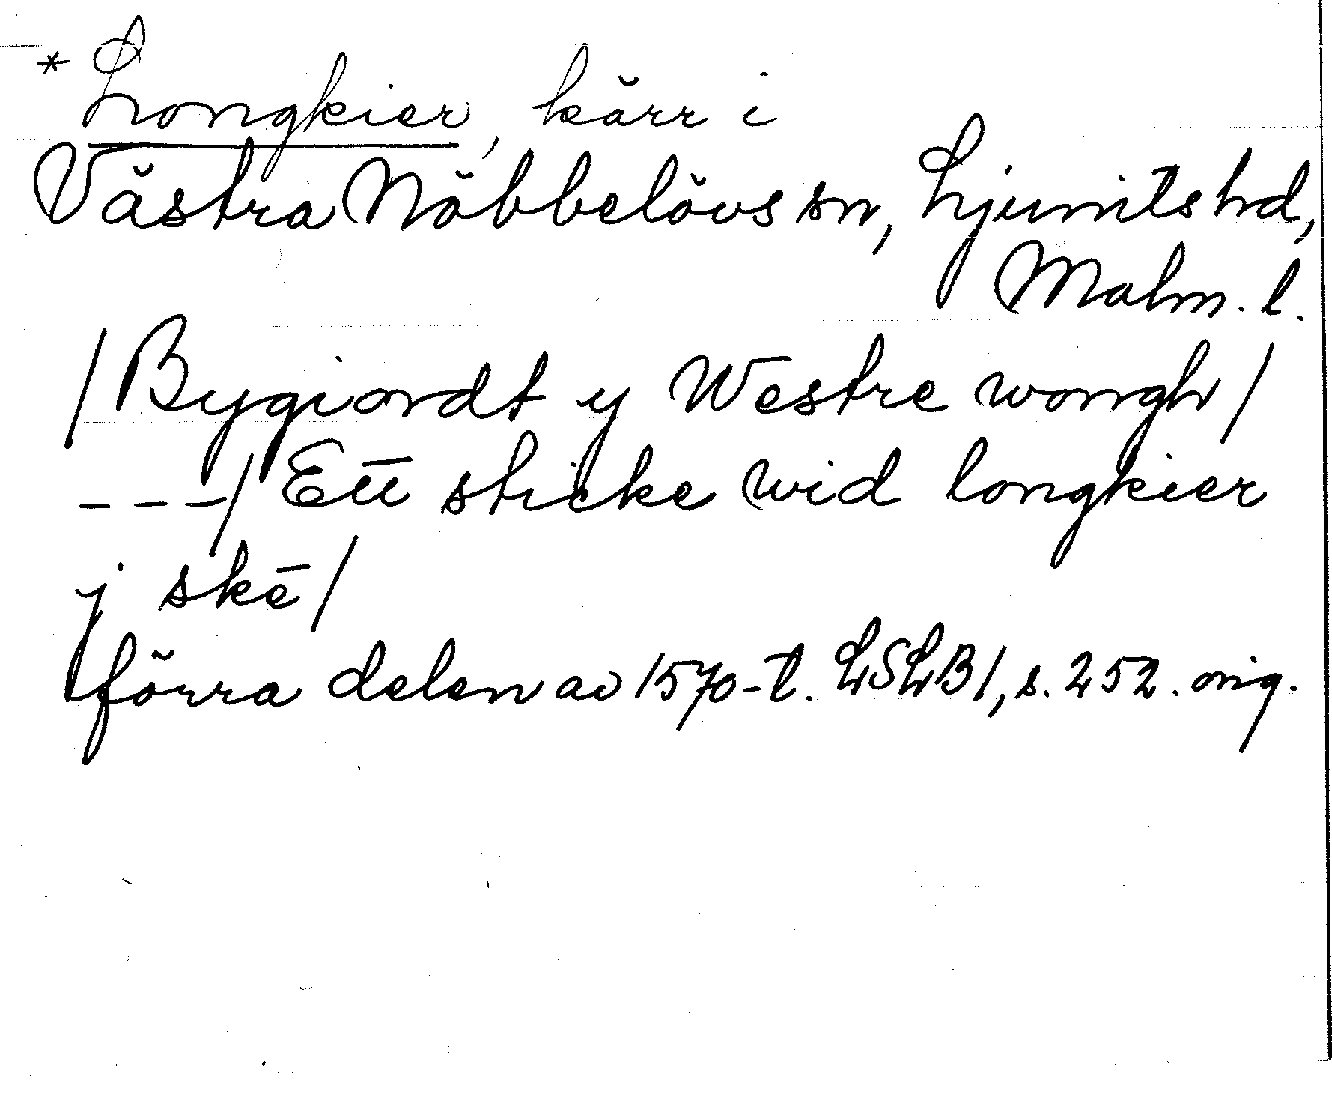 * Longkier, kärr i
Västra Nöbbelövs sn, Ljunits hd,
Malm. l.
/Bygiordt y Westre wongh/
---/ Ett sticke wid longkier
j skē/
förra delen av 1570-t. LSLB1, s. 252. orig.